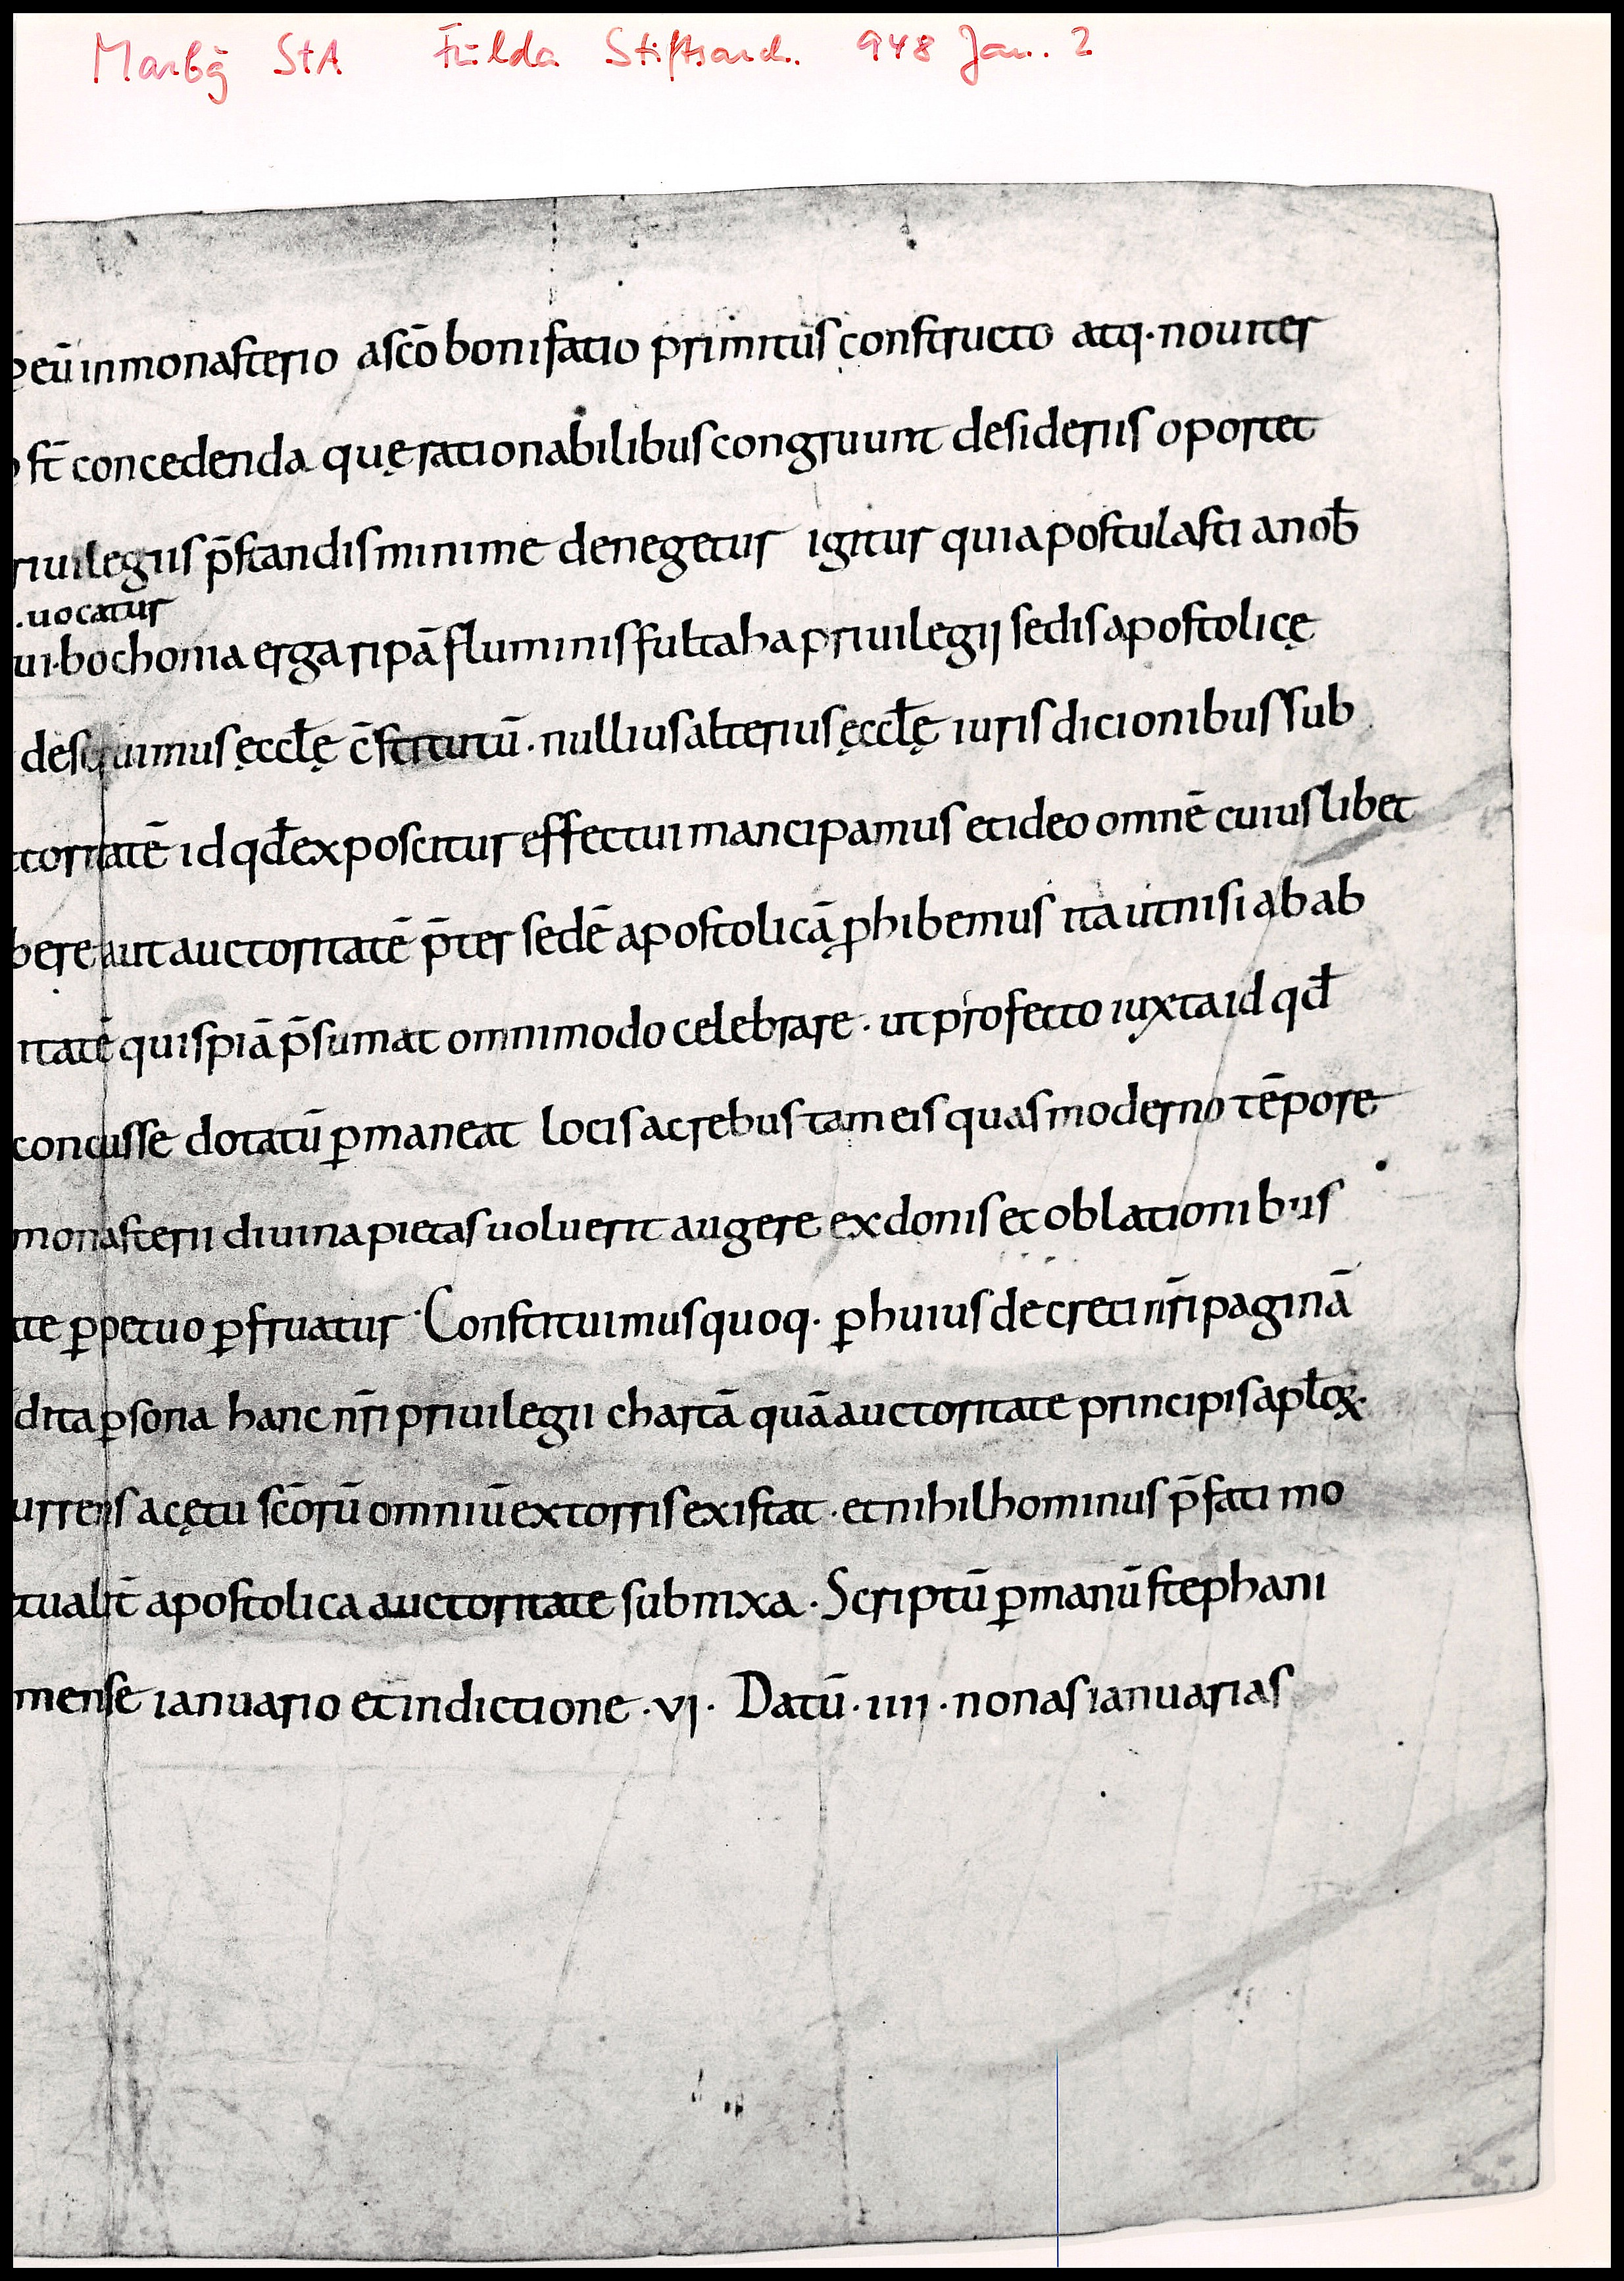 Marbg StA Fulda Stiftsarch. 948 Jan. 2
eū in monasterio a scō bonifatio primitus constructo atq· nouiter
st̄ concedenda quę rationabilibus congruunt desideriis oportet
riuilegiis p̄standis minime denegetur igitur quia postulasti a nob̄
·uocatur
ui·bochonia erga ripā fluminis fultaha priuilegij sedis apostolicę
deseruimus ęccłę c̄stitutū · nullius alterius ęccłę iuris dicionibus sub
toritatē id qđ exposcitur effectui mancipamus et ideo omnē cuius libet
bere aut auctoritatē p̄ter sedē apostolicā ꝓhibemus ita ut nisi ab ab
itatē quispiā p̄sumat omnimodo celebrare · ut profecto iuxta id qđ
concusse dotatū ꝑmaneat locis ac rebus tam eis quas moderno tēpore
monasterii diuina pietas uoluerit augere ex donis et oblationibus
te ꝑpetuo ꝑfruatur · Constituimus quoq· ꝑ huius decreti nr̄i paginā
dita ꝑsona hanc nr̄i priuilegii chartā quā auctoritate principis apłoꝝ·
urrens a cętu scōrū omniū extorris existat · et nihilhominus p̄fati mo
tualit̄ apostolica auctoritate subnixa · Scriptū ꝑ manū stephani
mense ianuario et indictione ·vj· Datū · iiij · nonas ianuarias